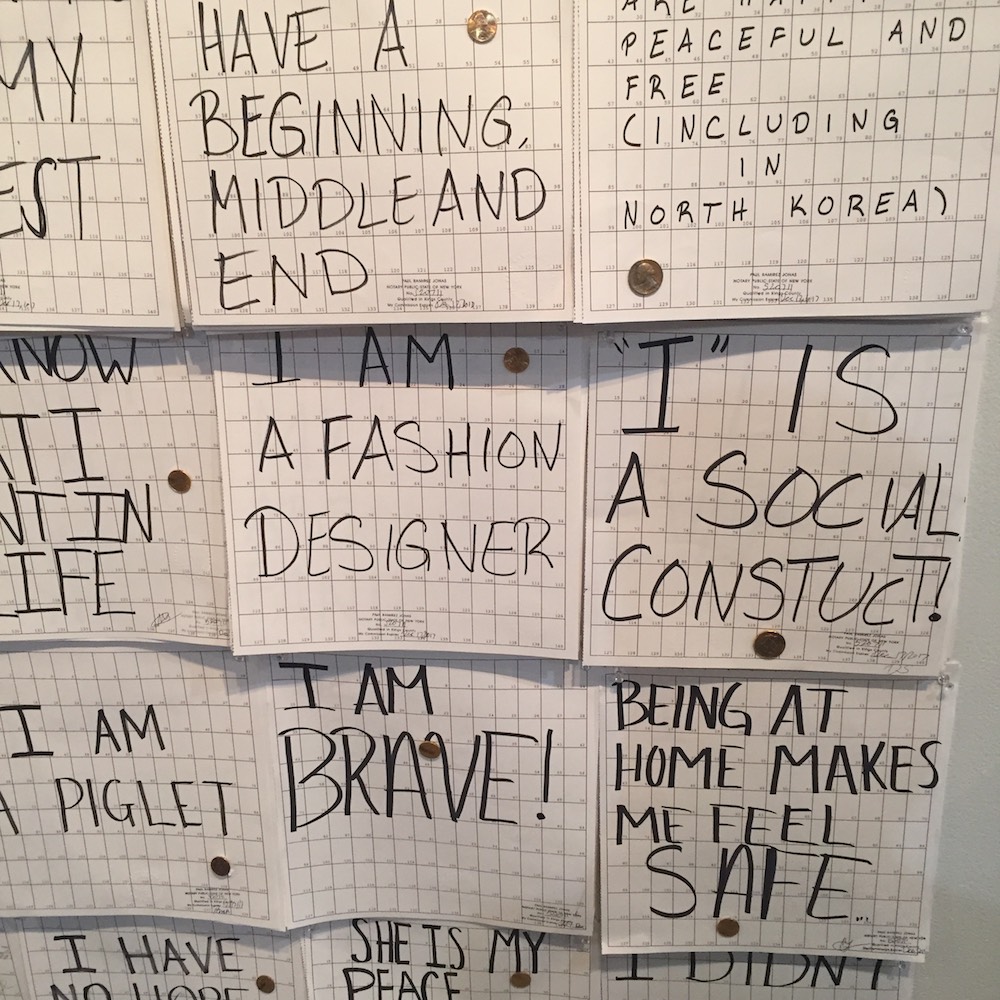 MY
EST
HAVE A
BEGINNING,
MIDDLE AND
END
PAUL RAMIREZ JONAS
NOTARY PUBLIC STATE OF NEW YORK
PEACEFUL AND
FREE
(INCLUDING
IN
NORTH KOREA)
PAUL RAMIREZ JONAS
NOTARY PUBLIC STATE OF NEW YORK
Qualified in Kings County
KNOW
I
IN
LIFE
I AM
A FASHION
DESIGNER
PAUL RAMIREZ JONAS
NOTARY PUBLIC STATE OF NEW YORK
Qualified in Kings County
"I" IS
A SOCIAL
CONSTUCT!
I AM
A PIGLET
I AM
BRAVE!
BEING AT
HOME MAKES
ME FEEL
SAFE...
I HAVE
NO HOPE
SHE IS MY
PEACE
I DIDN'T